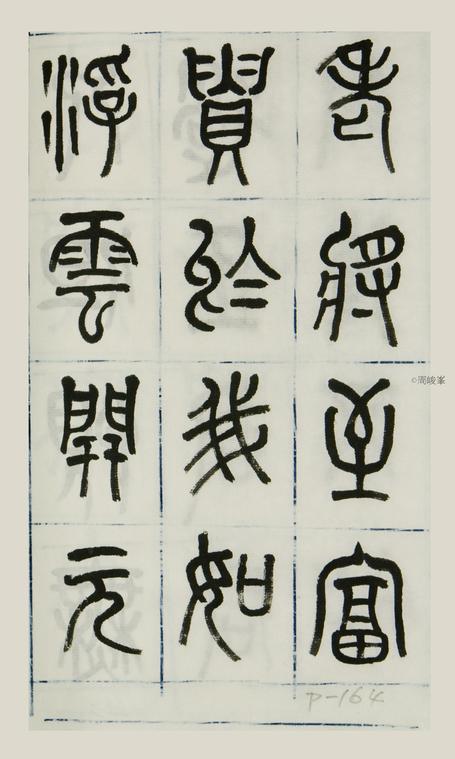 老將至富
貴於我如
浮雲開元
©周峻峯
P-164